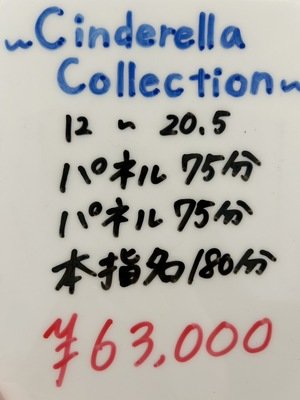 ~Cinderella
Collection~
12 ~ 20.5
パネル 75分
パネル 75分
本指名 180分
¥63,000